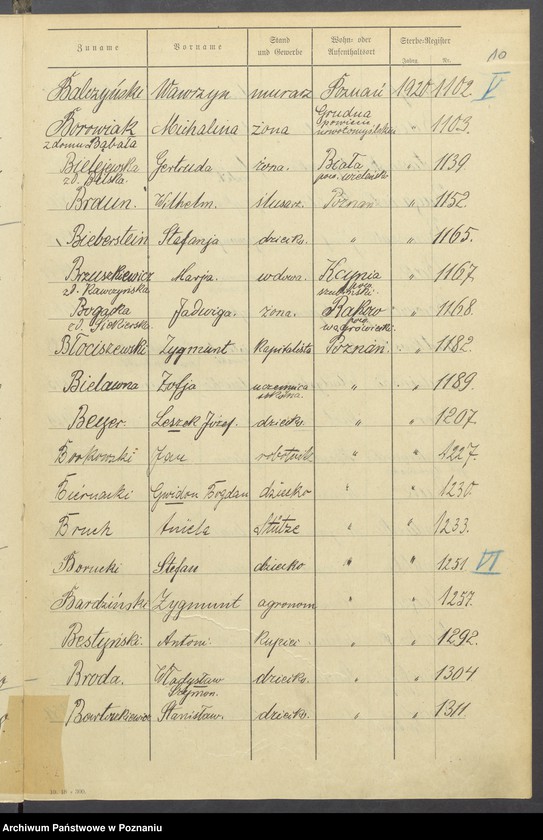 10
Zuname Vorname Stand und Gewerbe Wohn- oder Aufenthaltsort Sterbe-Register
Jahrg. Nr.
Balczyński Wawrzyn murarz Poznań 1920 1102 V
Borowiak z domu Bąbała Michalina żona Grudna powiecie nowotomyślskim " 1103.
Bielejewska zd. Bilska. Gertruda żona. Biała pow. wieluński " 1139
Braun. Wilhelm. ślusarz. Poznań " 1152.
Bieberstein Stefanja dziecko. " " 1165.
Brzuszkiewicz zd. Kawczyńska Marja. wdowa. Kcynia pow. szubiński. " 1167
Bogacka zd. Siekierska. Jadwiga. żona. Rąkowo pow. wągrówiecki. " 1168.
Błociszewski Zygmunt kapitalista Poznań. " 1182.
Bielawna Zofja uczennica szkolna. " " 1189.
Beyer. Leszek Józef. dziecko. " " 1207
Borkowski Jan robotnik " " 1227.
Biernacki Gwidon Bogdan dziecko " " 1230.
Bruch Aniela Stütze " " 1233.
Borucki Stefan dziecko " " 1251 VI
Bardziński Zygmunt agronom " " 1257.
Bestyński. Antoni kupiec " " 1292.
Broda. Władysław Szymon. dziecko. " " 1304
Bartoszkiewicz Stanisław. dziecko. " " 1311
Archiwum Państwowe w Poznaniu